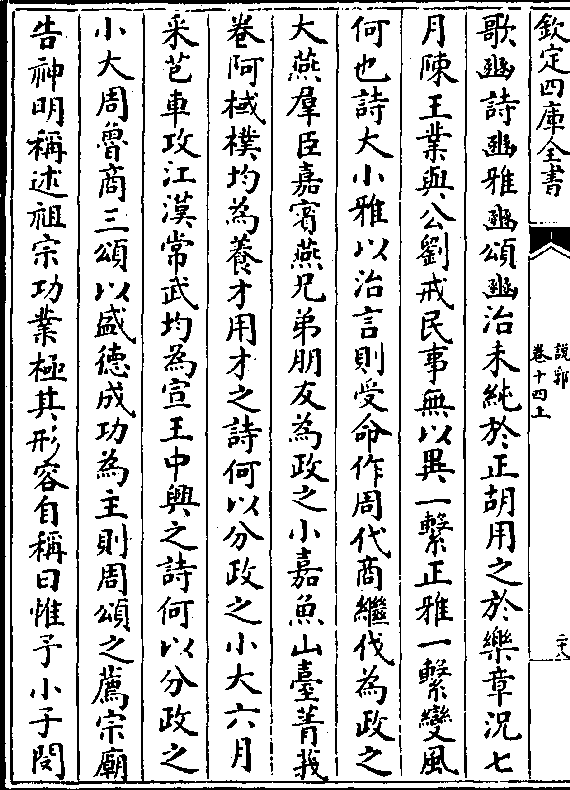 欽定四庫全書
說郛
卷十四上
二十八
歌豳詩豳雅豳頌豳治未純於正胡用之於樂章況七
月陳王業與公劉戒民事無以異一繫正雅一繫變風
何也詩大小雅以治言則受命作周代商繼伐為政之
大燕羣臣嘉賓燕兄弟朋友為政之小嘉魚山臺菁莪
卷阿棫樸均為養才用才之詩何以分政之小大六月
采芑車攻江漢常武均為宣王中興之詩何以分政之
小大周魯商三頌以盛德成功為主則周頌之薦宗廟
告神明稱述祖宗功業極其形容自稱曰惟予小子閔